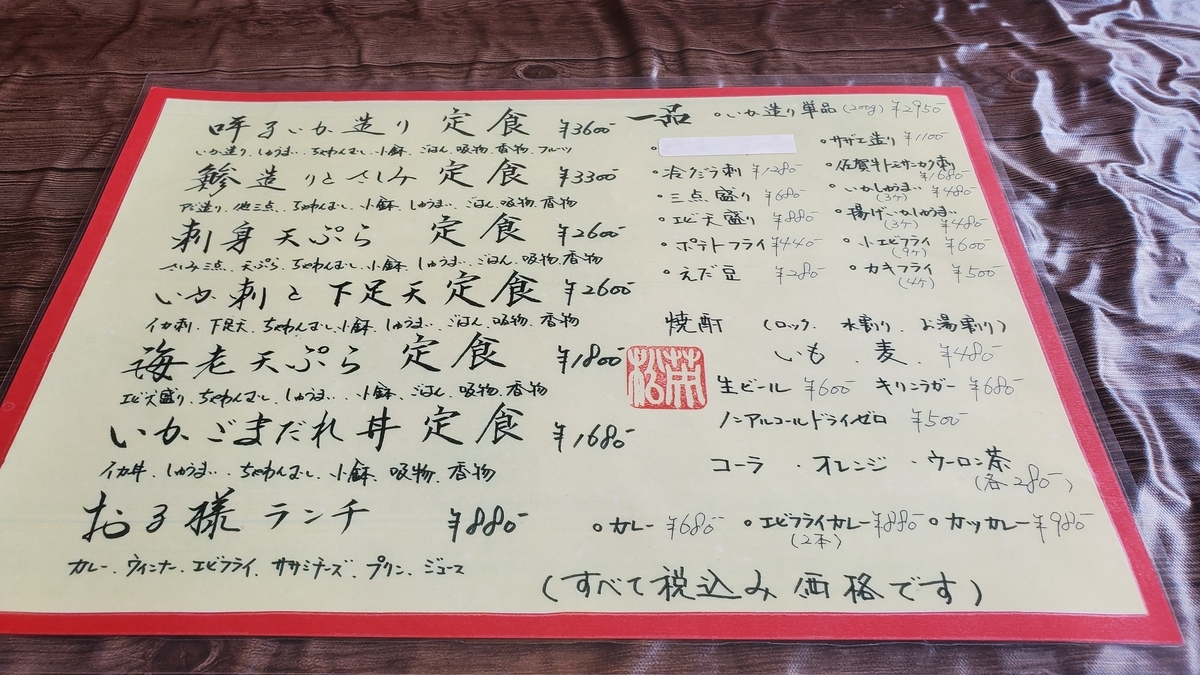 呼子いか造り 定食 ¥3600-
いか造り、しゅうまい、ちゃわんむし、小鉢、ごはん、吸物、香物、フルーツ
鯵造りとさしみ 定食 ¥3300-
アジ造り、他三点、ちゃわんむし、小鉢、しゅうまい、ごはん、吸物、香物
刺身天ぷら 定食 ¥2600-
さしみ三点、天ぷら、ちゃわんむし、小鉢、しゅうまい、ごはん、吸物、香物
いか刺と下足天定食 ¥2600-
イカ刺、下足天、ちゃわんむし、小鉢、しゅうまい、ごはん、吸物、香物
海老天ぷら 定食 ¥1800-
エビ天盛り、ちゃわんむし、しゅうまい、小鉢、ごはん、吸物、香物
いかごまだれ丼定食 ¥1680-
イカ丼、しゅうまい、ちゃわんむし、小鉢、吸物、香物
お子様ランチ ¥880-
カレー、ウィンナー、エビフライ、ササミチーズ、プリン、ジュース
一品 ・いか造り単品(200g) ¥2950-
・サザエ造り ¥1100-
・冷クジラ刺 ¥1280-
・佐賀牛トモサンカク刺 ¥1680-
・三点盛り ¥680-
・いかしゅうまい (3ケ) ¥480-
・エビ天盛り ¥880-
・揚げいかしゅうまい (3ケ) ¥480-
・ポテトフライ ¥440-
・小エビフライ (9ケ) ¥600-
・えだ豆 ¥280-
・カキフライ (4ケ) ¥500-
焼酎 (ロック、水割り、お湯割り)
いも、麦 ¥480-
松栄
生ビール ¥600- キリンラガー ¥680-
ノンアルコールドライゼロ ¥500-
コーラ ・オレンジ ・ウーロン茶
(各280-)
○カレー ¥680- ○エビフライカレー ¥880- ○カツカレー ¥980-
(2本)
(すべて税込み価格です)